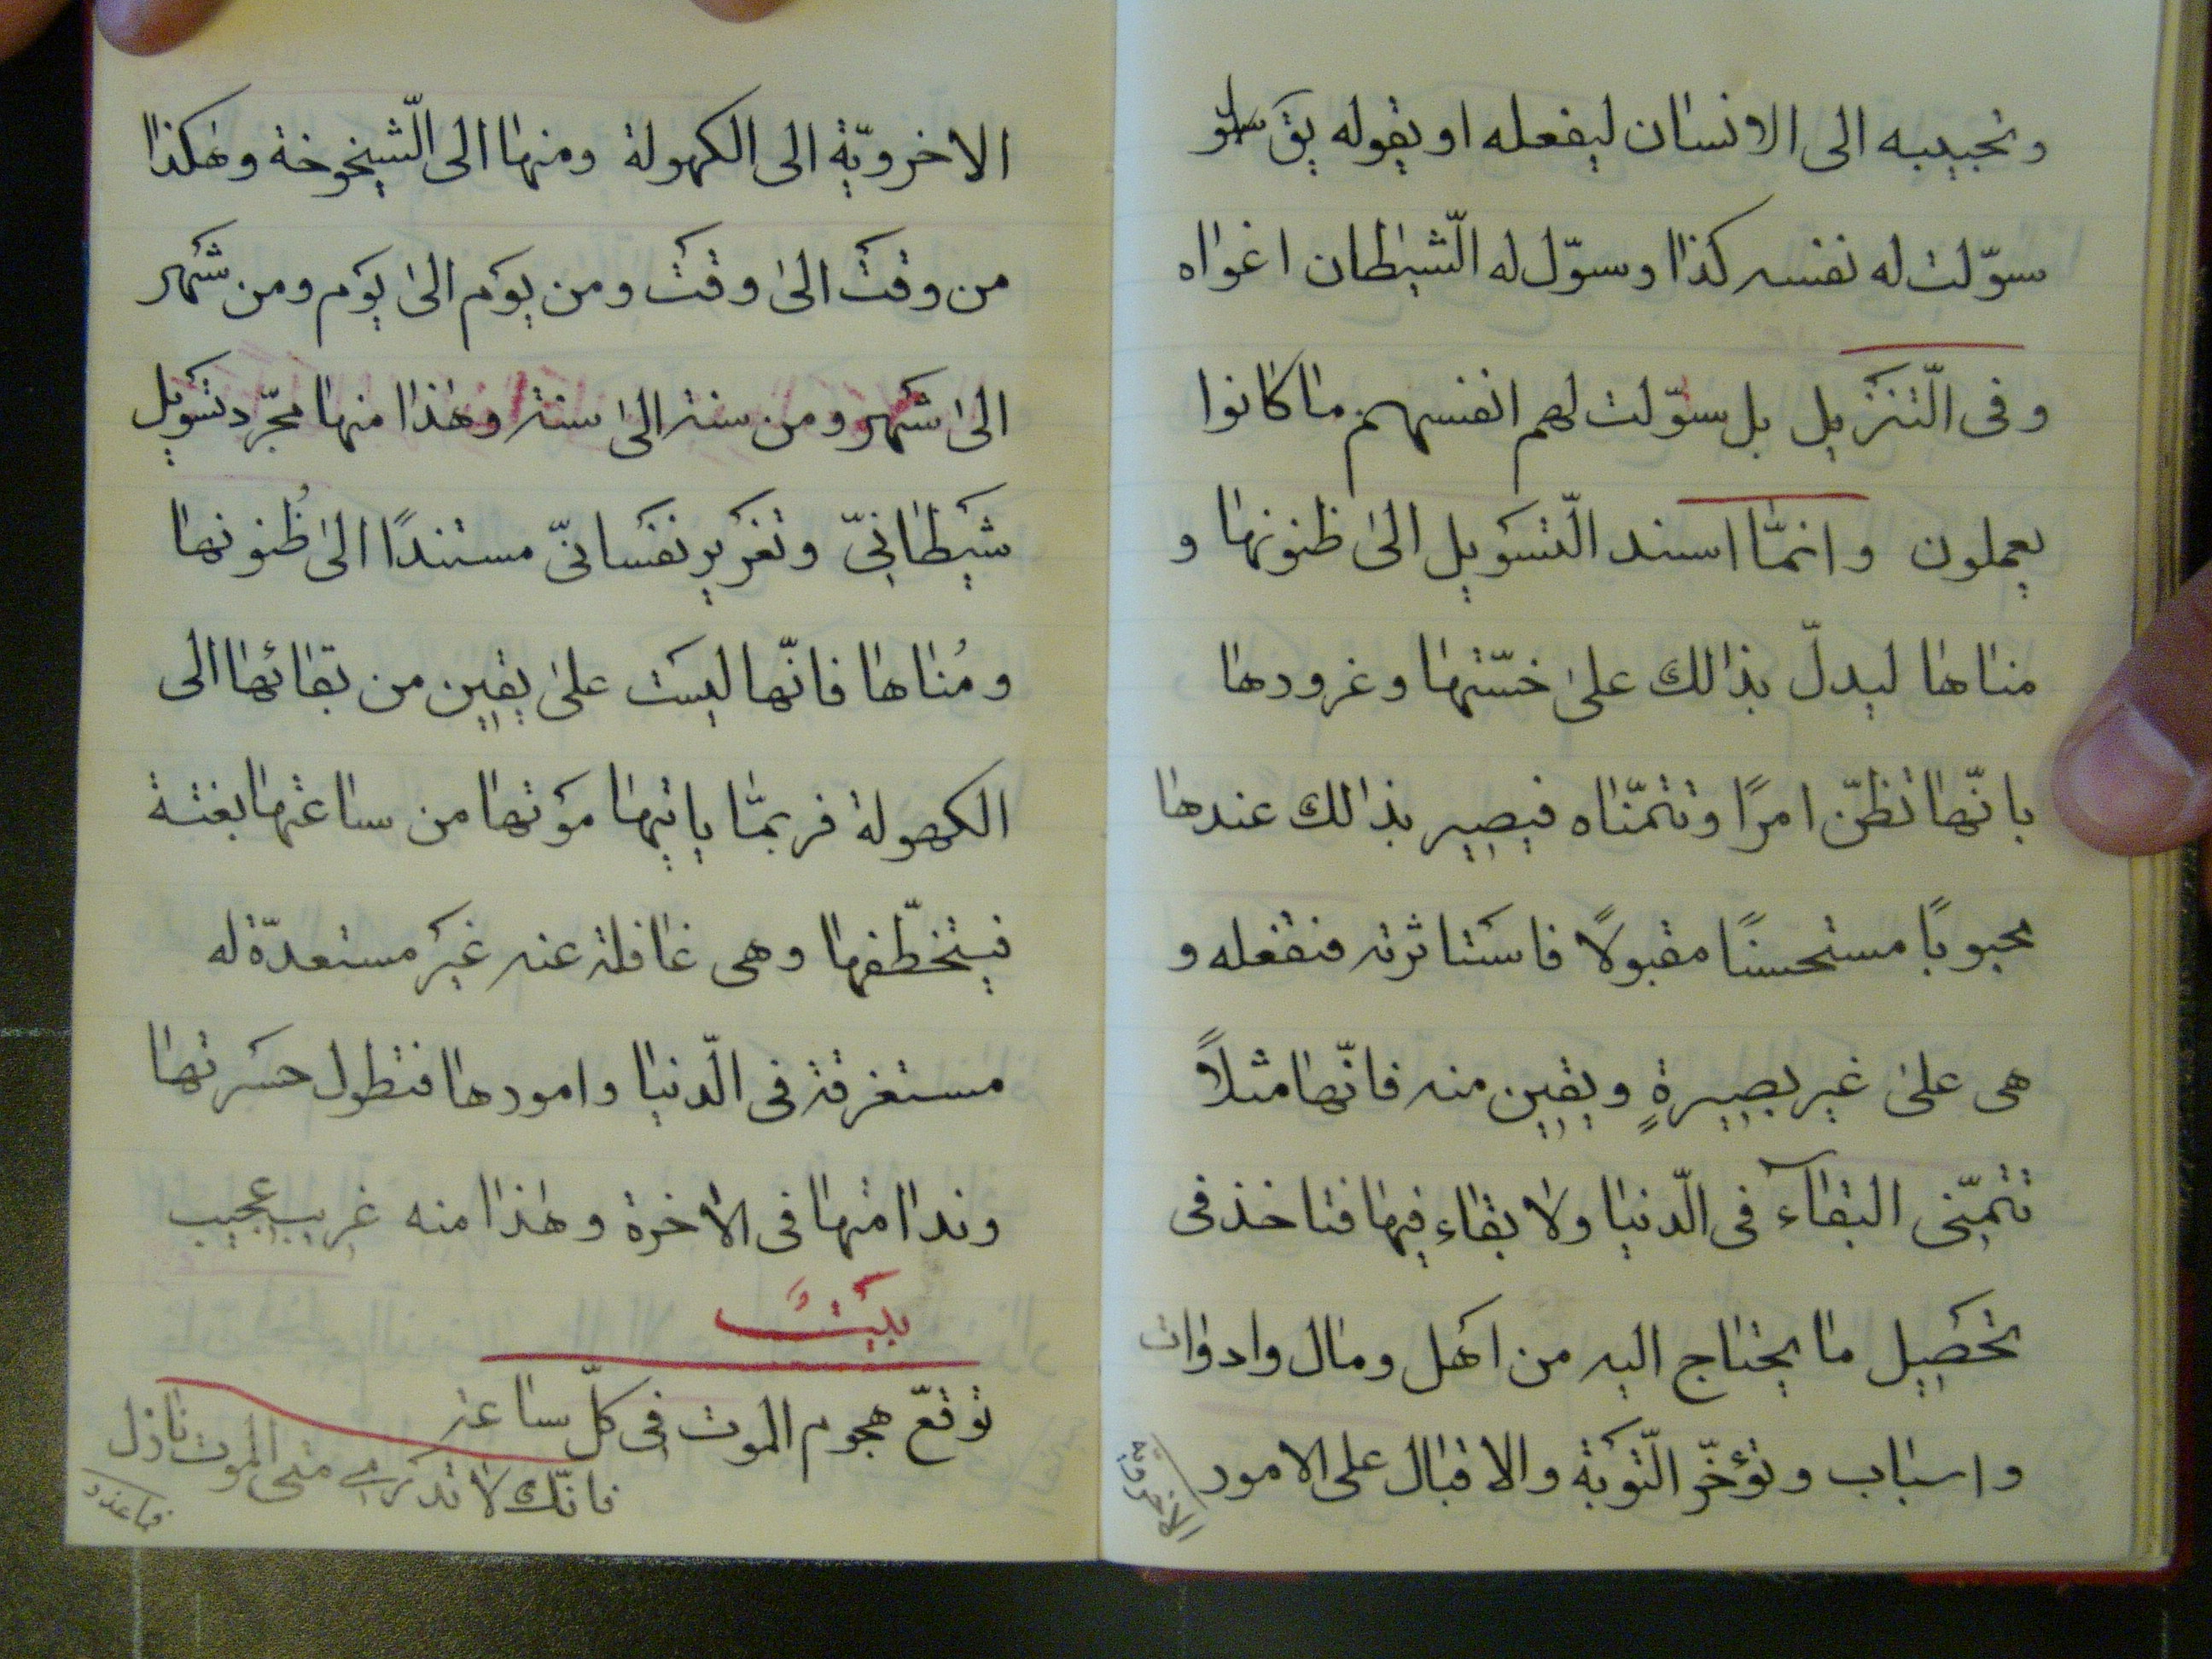 وتحبيبه الى الانسان ليفعله او يقوله يق
سوّلت له نفسه كذا وسوّل له الّشيطان اغواه
وفى الّتنزيل بل سوّلت لهم انفسهم ما كانوا
يعملون وانمّا اسند الّتسويل الىٰ ظنونها و
مناها ليدلّ بذالك علىٰ خسّتها وغرورها
بانّها تظنّ امرًا وتتمنّاه فيصير بذالك عندها
محبوبًا مستحسنًا مقبولًا فاستاثرته فتفعله و
هى علىٰ غير بصيرةٍ ويقين منه فانّها مثلاً
تتمنّى البقآء فى الّدنيا ولا بقاء فيها فتاخذ فى
تحصيل ما يحتاج اليه من اهل ومال وادوات
واسباب وتؤخّر الّتوبة والاقبال على الامور
الاخروية
الاخرويّة الى الكهولة ومنها الى الّشيخوخة وهٰكذا
من وقت الىٰ وقت ومن يوم الىٰ يوم ومن شهر
الىٰ شهر ومن سنة الىٰ سنة وهٰذا منها مجرّد تسويل
شيطانىّ وتغرير نفسانىّ مستندًا الىٰ ظُنونها
ومُناها فانّها ليست علىٰ يقين من بقائها الى
الكهولة فربمّا ياتيها موتها من ساعتها بغتة
فيتخطّفها وهى غافلة عنه غير مستعدّة له
مستغرقة فى الّدنيا وامورها فتطول حسرتها
وندامتها فى الاخرة وهٰذا منه غريب عجيب
بيت
توقّع هجوم الموت فى كلّ ساعة
فانّك لا تدرى متى الموت نازل